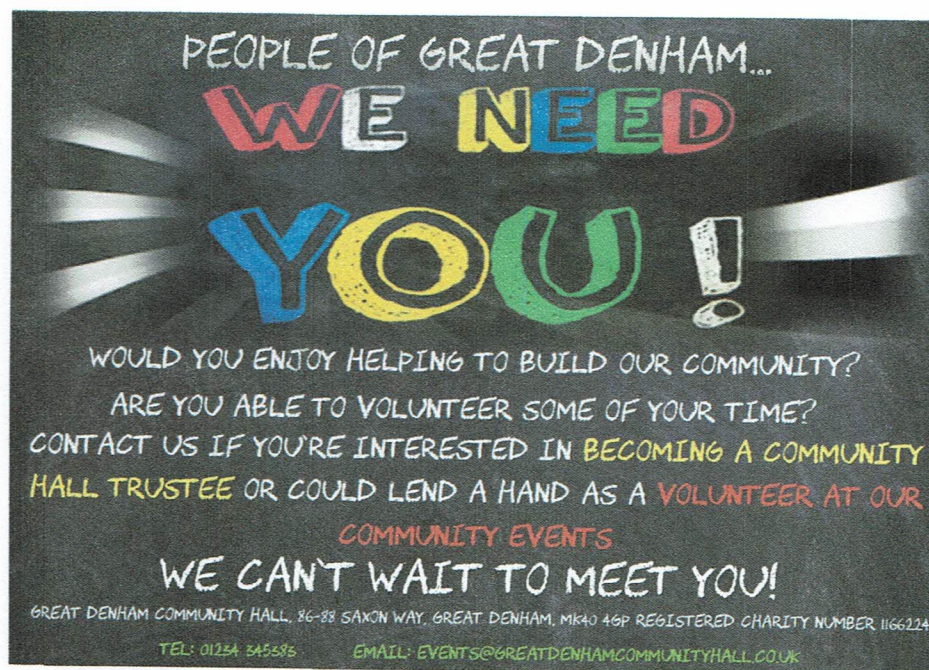 PEOPLE OF GREAT DENHAM...
WE NEED
YOU!
WOULD YOU ENJOY HELPING TO BUILD OUR COMMUNITY?
ARE YOU ABLE TO VOLUNTEER SOME OF YOUR TIME?
CONTACT US IF YOU'RE INTERESTED IN BECOMING A COMMUNITY
HALL TRUSTEE OR COULD LEND A HAND AS A VOLUNTEER AT OUR
COMMUNITY EVENTS
WE CAN'T WAIT TO MEET YOU!
GREAT DENHAM COMMUNITY HALL, 86-88 SAXON WAY, GREAT DENHAM, MK40 4GP REGISTERED CHARITY NUMBER 1166224
TEL: 01234 345383 EMAIL: EVENTS@GREATDENHAMCOMMUNITYHALL.CO.UK